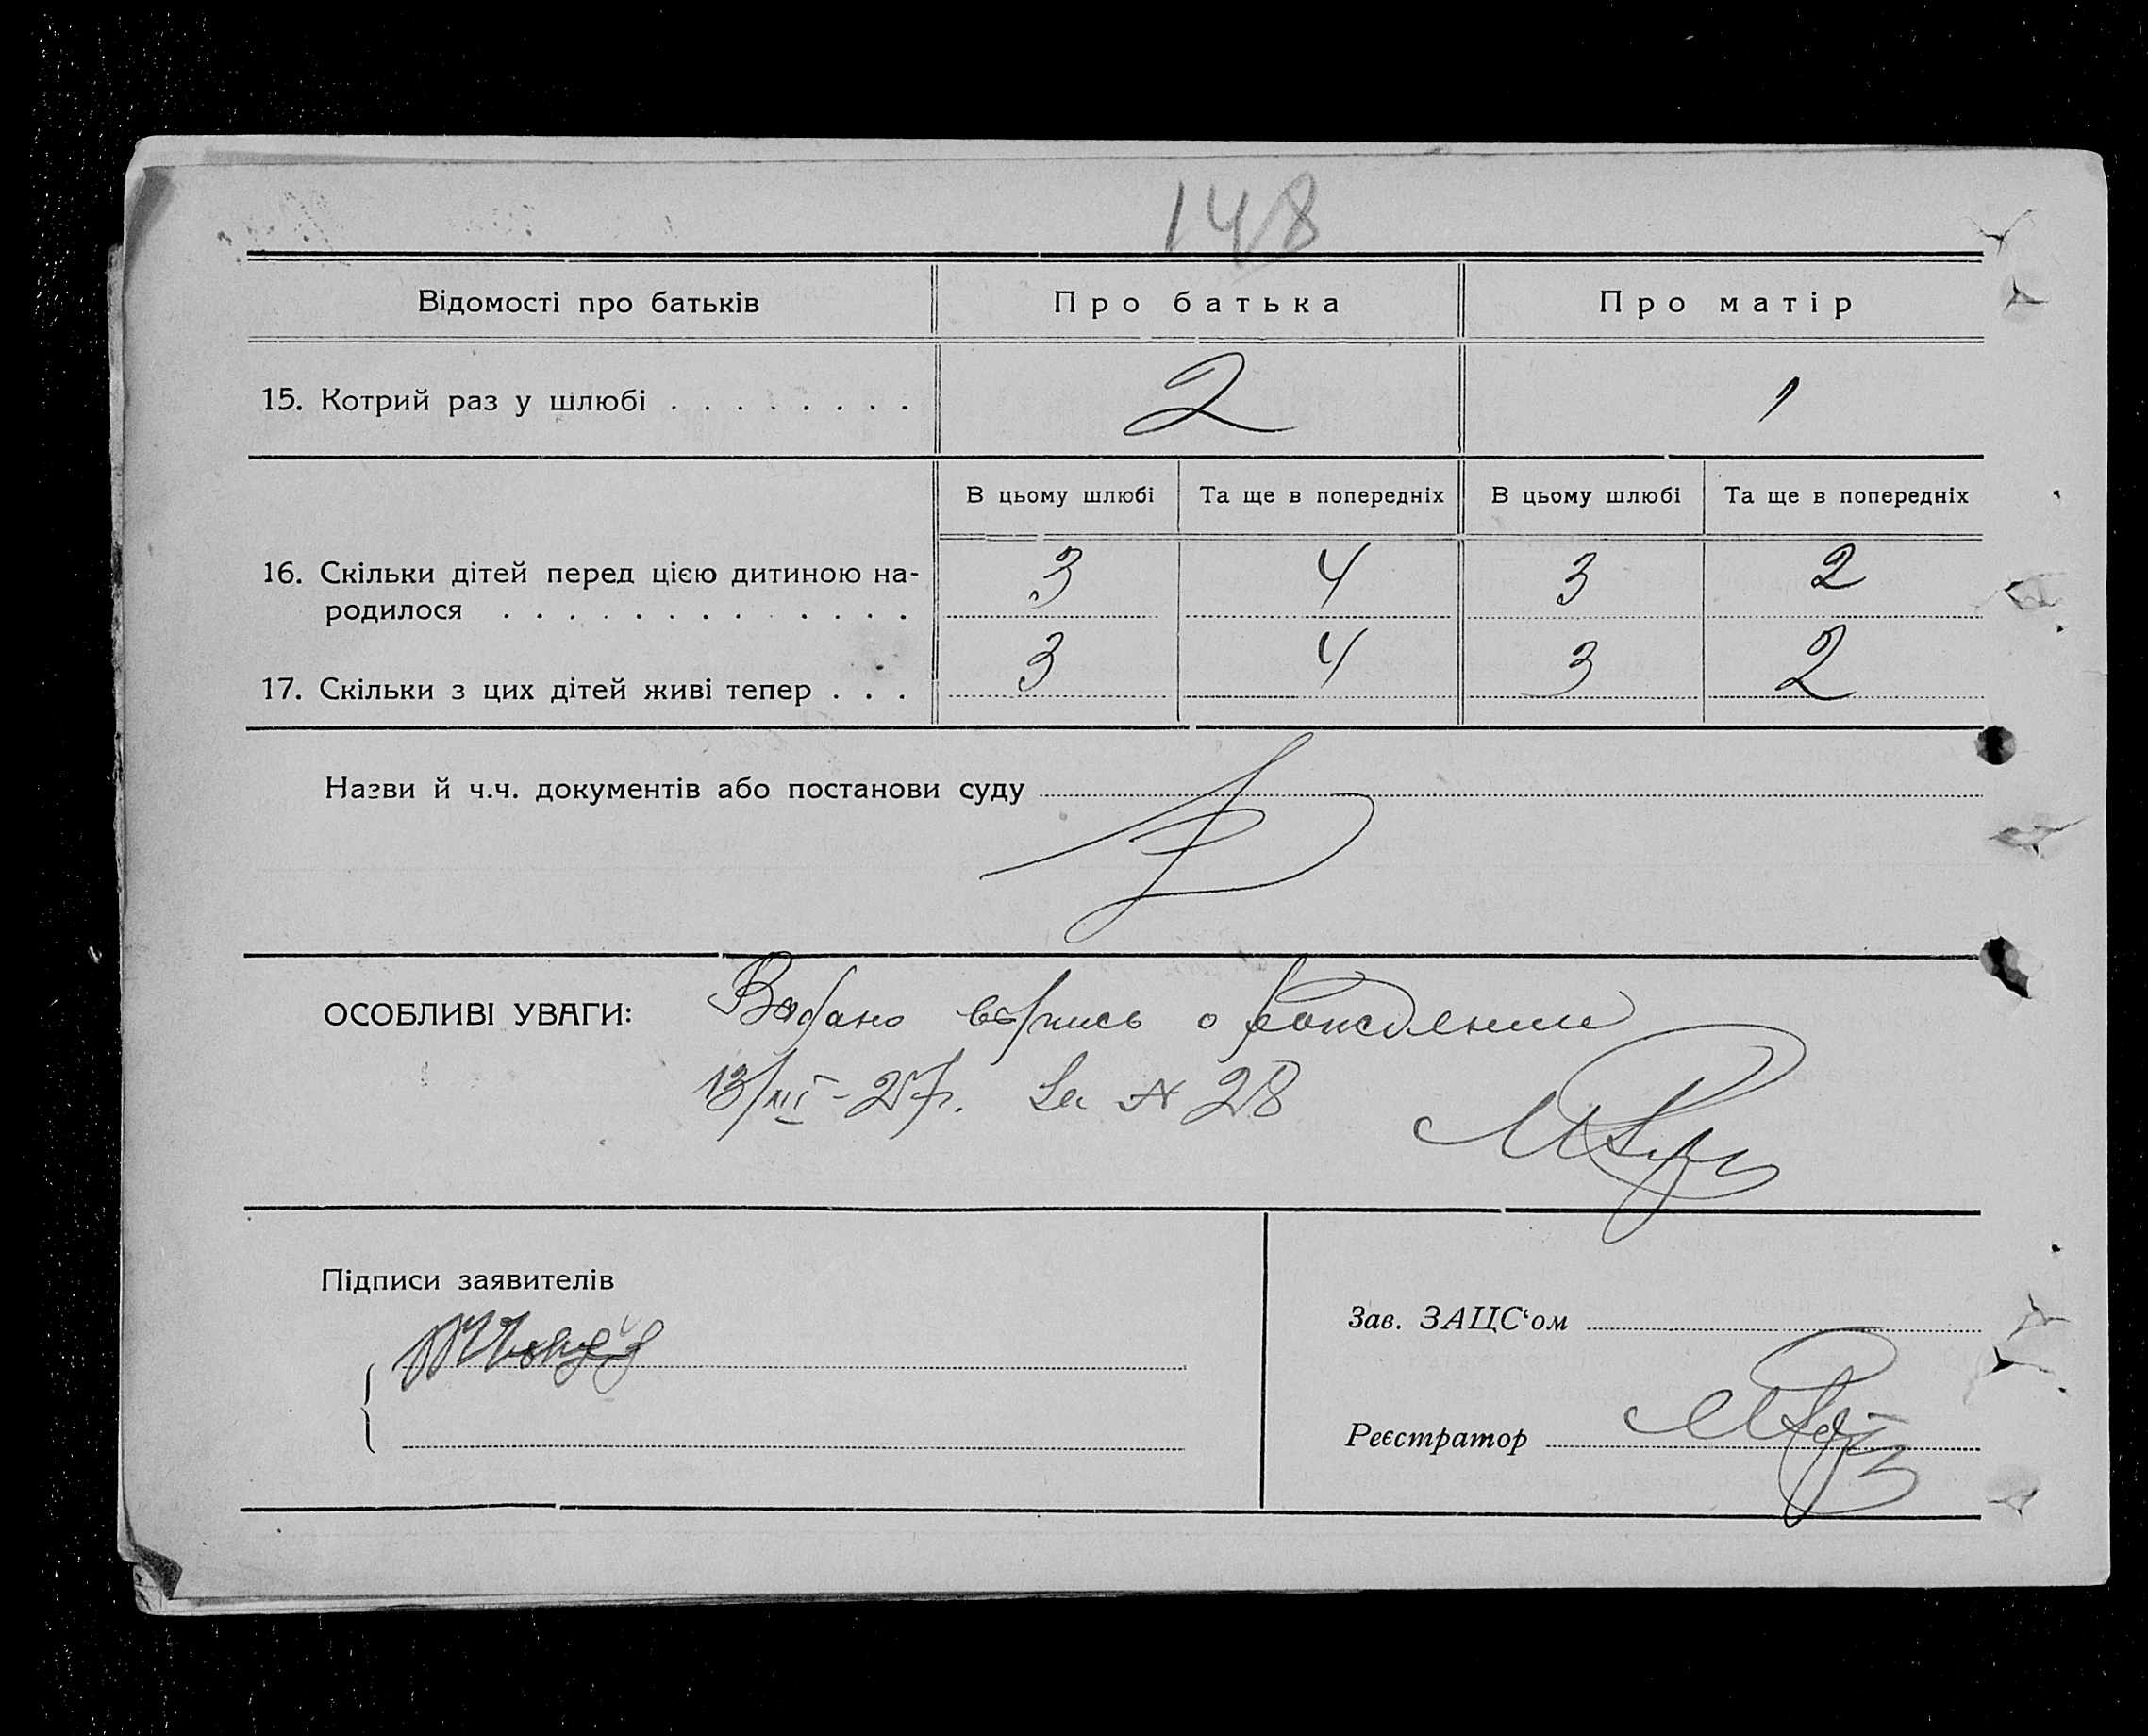 148
Відомості про батьків Про батька Про матір
15. Котрий раз у шлюбі . . . . . . . . 2 1
В цьому шлюбі Та ще в попередніх В цьому шлюбі Та ще в попередніх
16. Скільки дітей перед цією дитиною на- 3 4 3 2
родилося . . . . . . . . . . . . .
17. Скільки з цих дітей живі тепер . . . 3 4 3 2
Назви й ч.ч. документів або постанови суду
ОСОБЛИВІ УВАГИ: о рождении
13/III-27р. За № 28
Підписи заявителів
Зав. ЗАЦС‘ом
Реєстратор